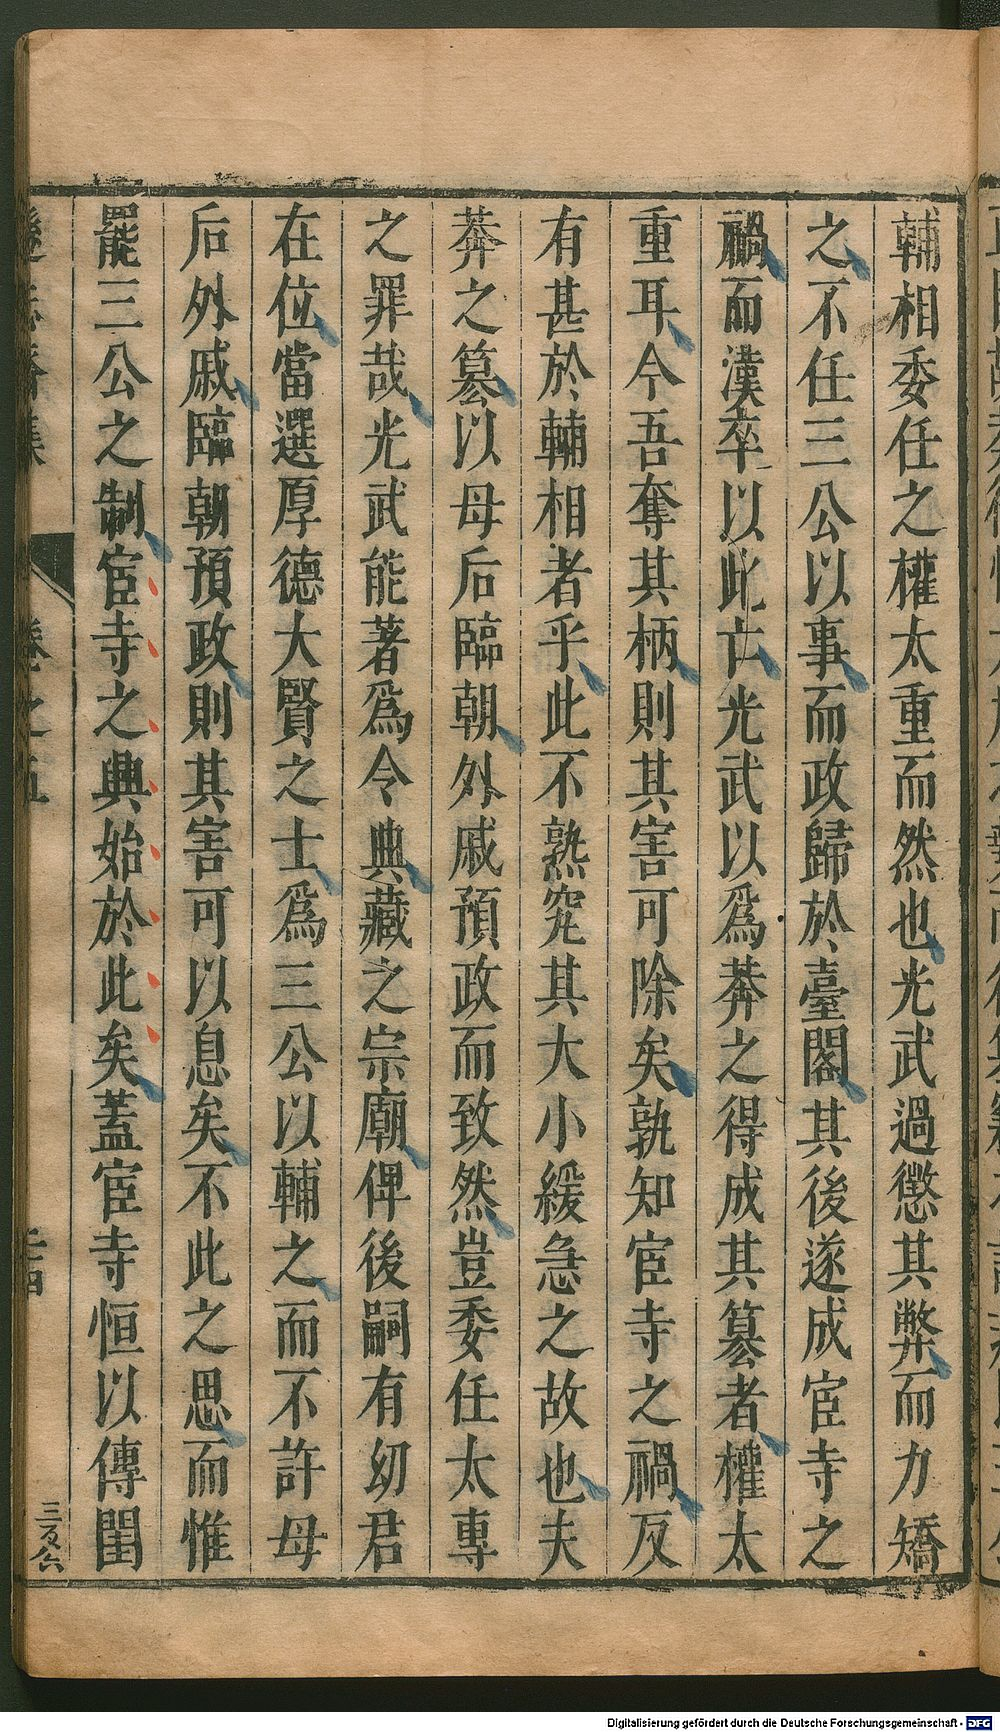 輔相委任之權太重而然也光武過懲其弊而力矯
之不任三公以事而政歸於臺閣其後遂成宦寺之
禍而漢卒以此亡光武以爲莽之得成其篡者權太
重耳今吾奪其柄則其害可除矣孰知宦寺之禍反
有甚於輔相者乎此不熟究其大小緩急之故也夫
莽之篡以母后臨朝外戚預政而致然豈委任太專
之罪哉光武能著爲令典藏之宗廟俾後嗣有幼君
在位當選厚德大賢之士爲三公以輔之而不許母
后外戚臨朝預政則其害可以息矣不此之思而惟
罷三公之制宦寺之興始於此矣蓋宦寺恒以傳閨
卷之五
Digitalisierung gefördert durch die Deutsche Forschungsgemeinschaft - DFG